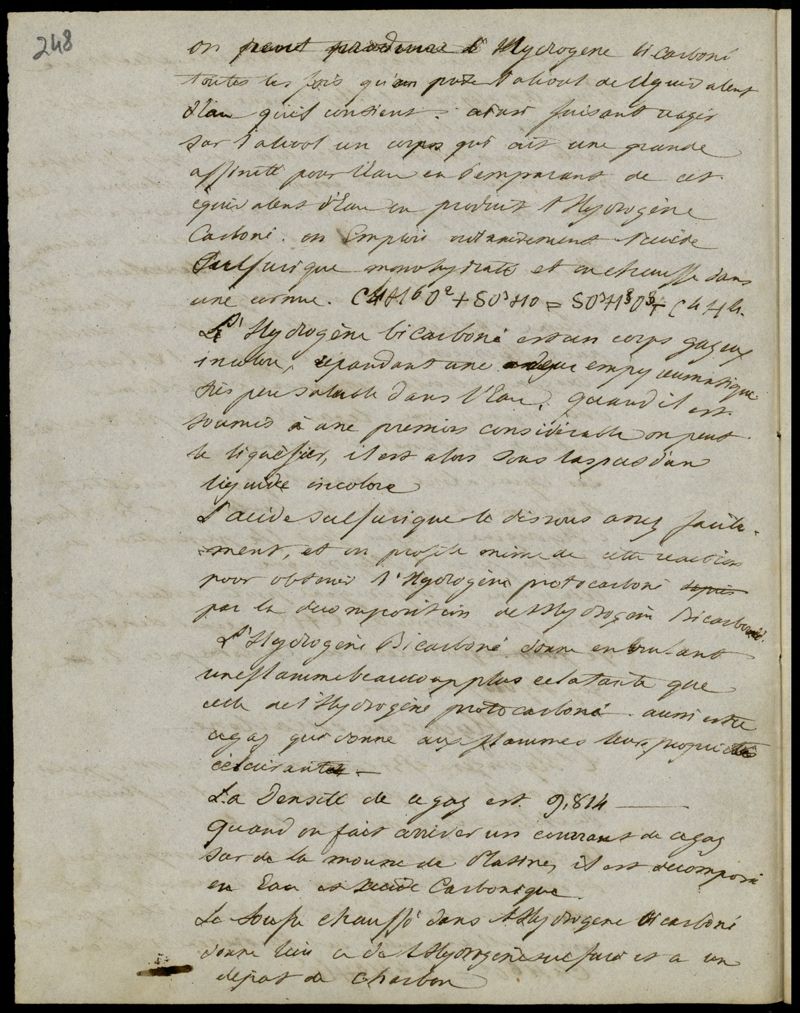 248
on peut produire l'Hydrogène bicarboné
toutes les fois qu'on prive l'alcool de l'équivalent
d'eau qu'il contient. ainsi faisant réagir
sur l'alcool un corps qui ait une grande
affinité pour l'Eau en s'emparant de cet
équivalent d'Eau on produit l'Hydrogène
Carboné. on Emploie ordinairement l'acide
Sulfurique monohydraté et on chauffe dans
une cornue. C4H6O2 + SO3HO = SO3H3O3 + C4H4.
L'Hydrogène bicarboné est un corps gazeux
incolore, répandant une odeur empyreumatique
très peu soluble dans l'Eau. quand il est
soumis à une pression considérable on peut
le liquéfier, il est alors sous l'aspect d'un
liquide incolore
L'acide sulfurique le dissous assez facile-
ment, et on profite même de cette réaction
pour obtenir l'Hydrogène protocarboné
par la décomposition de l'Hydrogène Bicarboné.
L'Hydrogène Bicarboné donne en brulant
une flamme beaucoup plus éclatante que
celle de l'Hydrogène protocarboné. aussi est ce
ce gaz qui donne aux flammes leurs propriétés
éclairantes -
La Densité de ce gaz est 9,814 —
quand on fait arriver un courant de ce gaz
sur de la mousse de Platine, il est décomposé
en Eau et acide Carbonique.
Le Soufre chauffé dans l'Hydrogène bicarboné
donne lieu a de l'Hydrogène sulfuré et a un
dépot de charbon